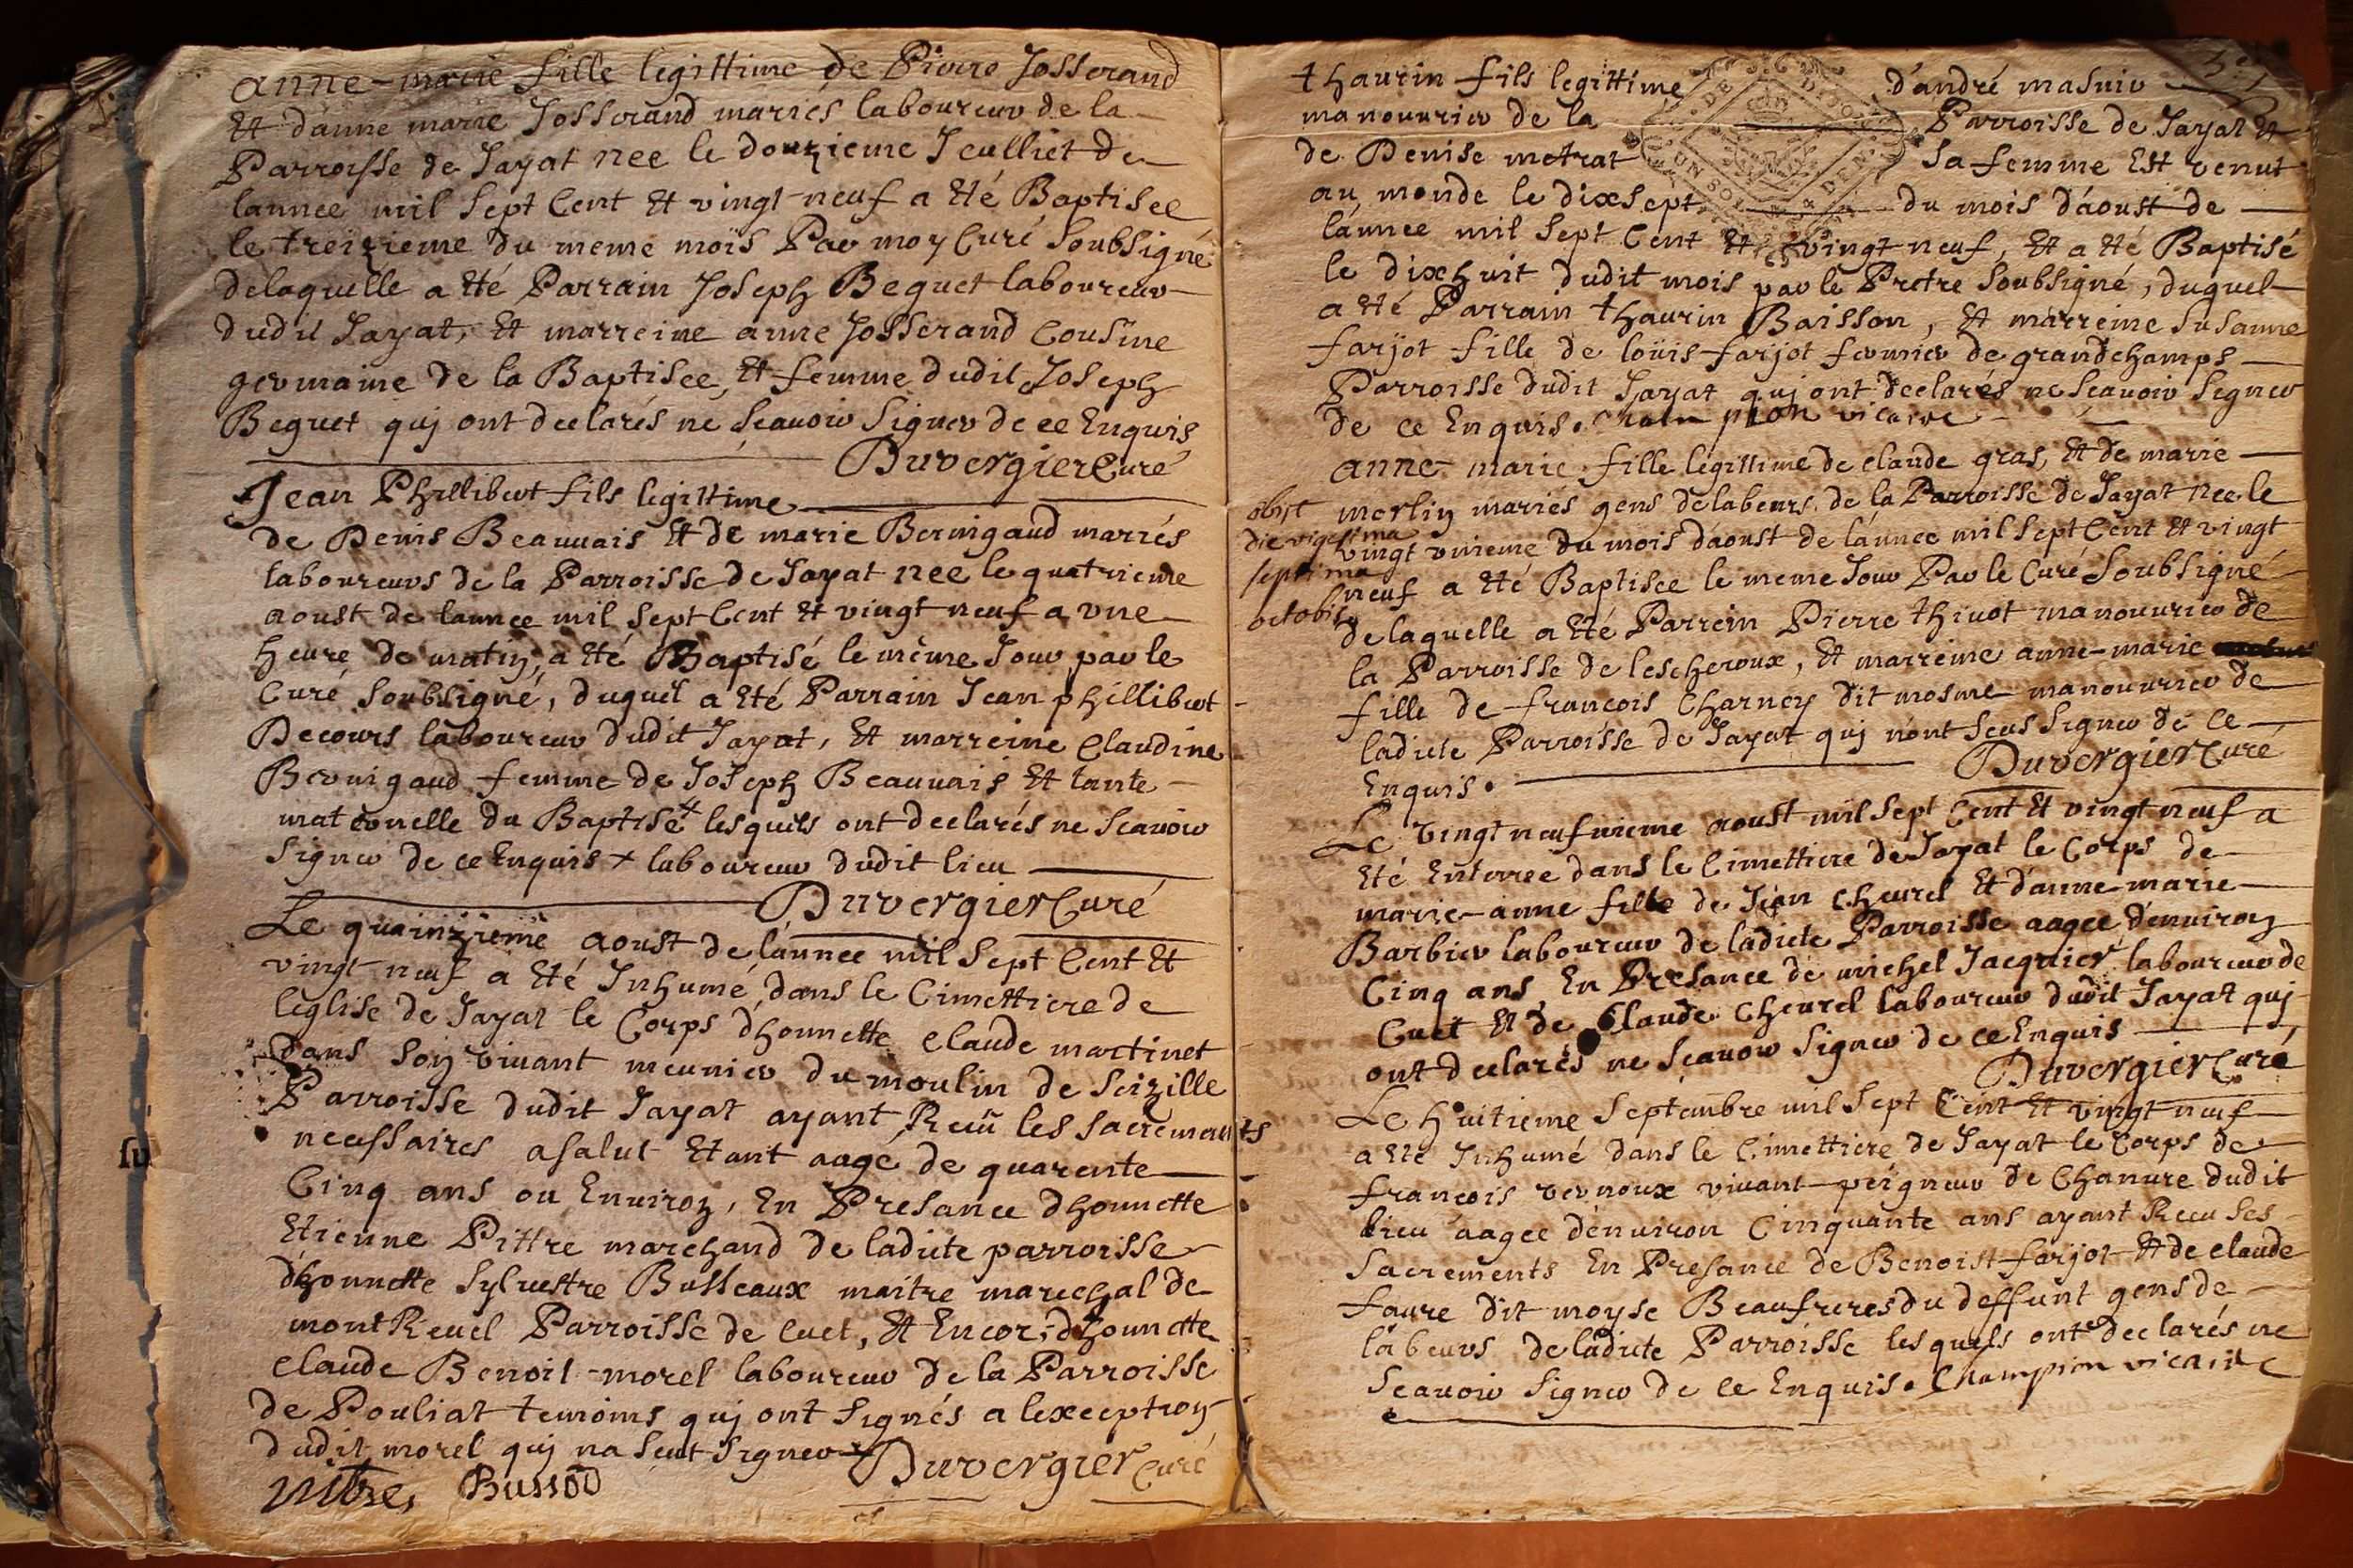 anne-marie fille legittime de Pierre Josserand
Et d'anne marie Josserand mariés laboureur de la
Parroisse de Jayat nee le douzieme Jeulliet de
lannee mil sept Cent Et vingt-neuf a Eté Baptisee
le treizieme du meme mois Par moy Curé soubsigné
delaquelle a Eté Parrain Joseph Beguet laboureur
dudit Jayat, Et marreine anne Josserand Cousine
germaine de la Baptisee, Et femme dudit Joseph
Beguet quj ont declarés ne scauoir signer de ce Enquis
Duvergier Curé
Jean Phillibert fils legittime
de Denis Beauuais Et de marie Bernigaud mariés
laboureurs de la Parroisse de Jayat nee le quatrieme
aoust de lannee mil sept Cent Et vingt neuf a vne
heure de matin, a Eté Baptisé le même Jour par le
Curé soubsigné, duquel a Eté Parrain Jean phillibert
Decours laboureur dudit Jayat, Et marreine Claudine
Bernigaud femme de Joseph Beauuais Et tante
maternelle du Baptisé + lesquels ont declarés ne scauoir
signer de ce Enquis + laboureur dudit lieu
Duvergier Curé
Le quainzieme aoust de lánnee mil sept Cent Et
vingt neuf a Eté Inhumé, dans le Cimettiere de
leglise de Jayat le Corps dhonnette Claude martinet
dans son viuant meunier du moulin de Seizille
Parroisse dudit Jayat ayant Receü les sacrements
necessaires a salut Etant aagé de quarente
Cinq ans ou Enuiron, En Presance dhonnette
Etienne Pittre marchand de ladicte parroisse
dhonnette Syluestre Busseaux maitre marechal de
montReuel Parroisse de Cuet, Et Encor, dhonnette
Claude Benoit-morel laboureur de la Parroisse
de Pouliat temoins quj ont signés a lexception
dudit morel quj na seut signer
Duvergier Curé
Pitre, Bussod
thaurin fils legittime d'andré masuir
manouurier de la Parroisse de Jayat Et
de Denise metrat sa femme Est venut
au monde le dixsept du mois dáoust de
lánnee mil sept Cent Et vingt neuf, Et a Eté Baptisé
le dixhuit dudit mois par le Pretre soubsigné, duquel
a Eté Parrain thaurin Baisson, Et marreine Susanne
farjot fille de loüis farjot fermier de grandchamps
Parroisse dudit Jayat quj ont declarés ne scauoir signer
de ce Enquis. Champion vicaire
anne-marie fille legittime de claude gras, Et de marie
merlin mariés gens de labeurs de la Parroisse de Jayat nee le
vingt vnieme du mois dáoust de lánnee mil sept Cent Et vingt
neuf a Eté Baptisee le meme Jour Par le Curé soubsigné
obijt
die vigesima
septima
octobris
delaquelle a Eté Parrein Pierre thiuot manouurier de
la Parroisse de lescheroux, Et marreine anne-marie
fille de francois Charney dit mosme manouurier de
ladicte Parroisse de Jayat quj n'ont sceus signer de ce
Enquis.
Duvergier Curé
Le vingt neufuieme aoust mil sept Cent Et vingt neuf a
Eté Enterree dans le Cimettiere de Jayat le Corps de
marie-anne fille de Jean cheurel Et d'anne-marie
Barbier laboureur de ladicte Parroisse aagee d'enuiron
Cinq ans En Presance de michel Jacquier laboureur de
Cuet Et de Claude Cheurel laboureur dudit Jayat quj
ont declarés ne scauoir signer de ce Enquis
Duvergier Curé
Le huitieme septembre mil sept Cent Et vingt neuf
a Eté Inhumé dans le Cimettiere de Jayat le Corps de
francois vernoux viuant peigneur de Chanure dudit
lieu aagee d'enuiron Cinquante ans ayant Receu ses
sacrements En Presance de Benoist farjot Et de claude
faure dit moyse Beaufreres du deffunt gens de
labeurs de ladicte Parroisse lesquels ont declarés ne
scauoir signer de ce Enquis. Champion vicaire